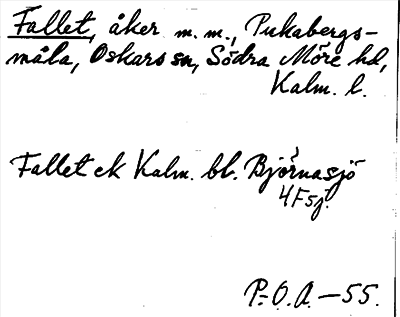 Fallet, åker m. m., Pukabergs-
måla, Oskars sn, Södra Möre hd,
Kalm. l.
Fallet ek Kalm. bl. Björnasjö
4F5j.
P.O.A. – 55.